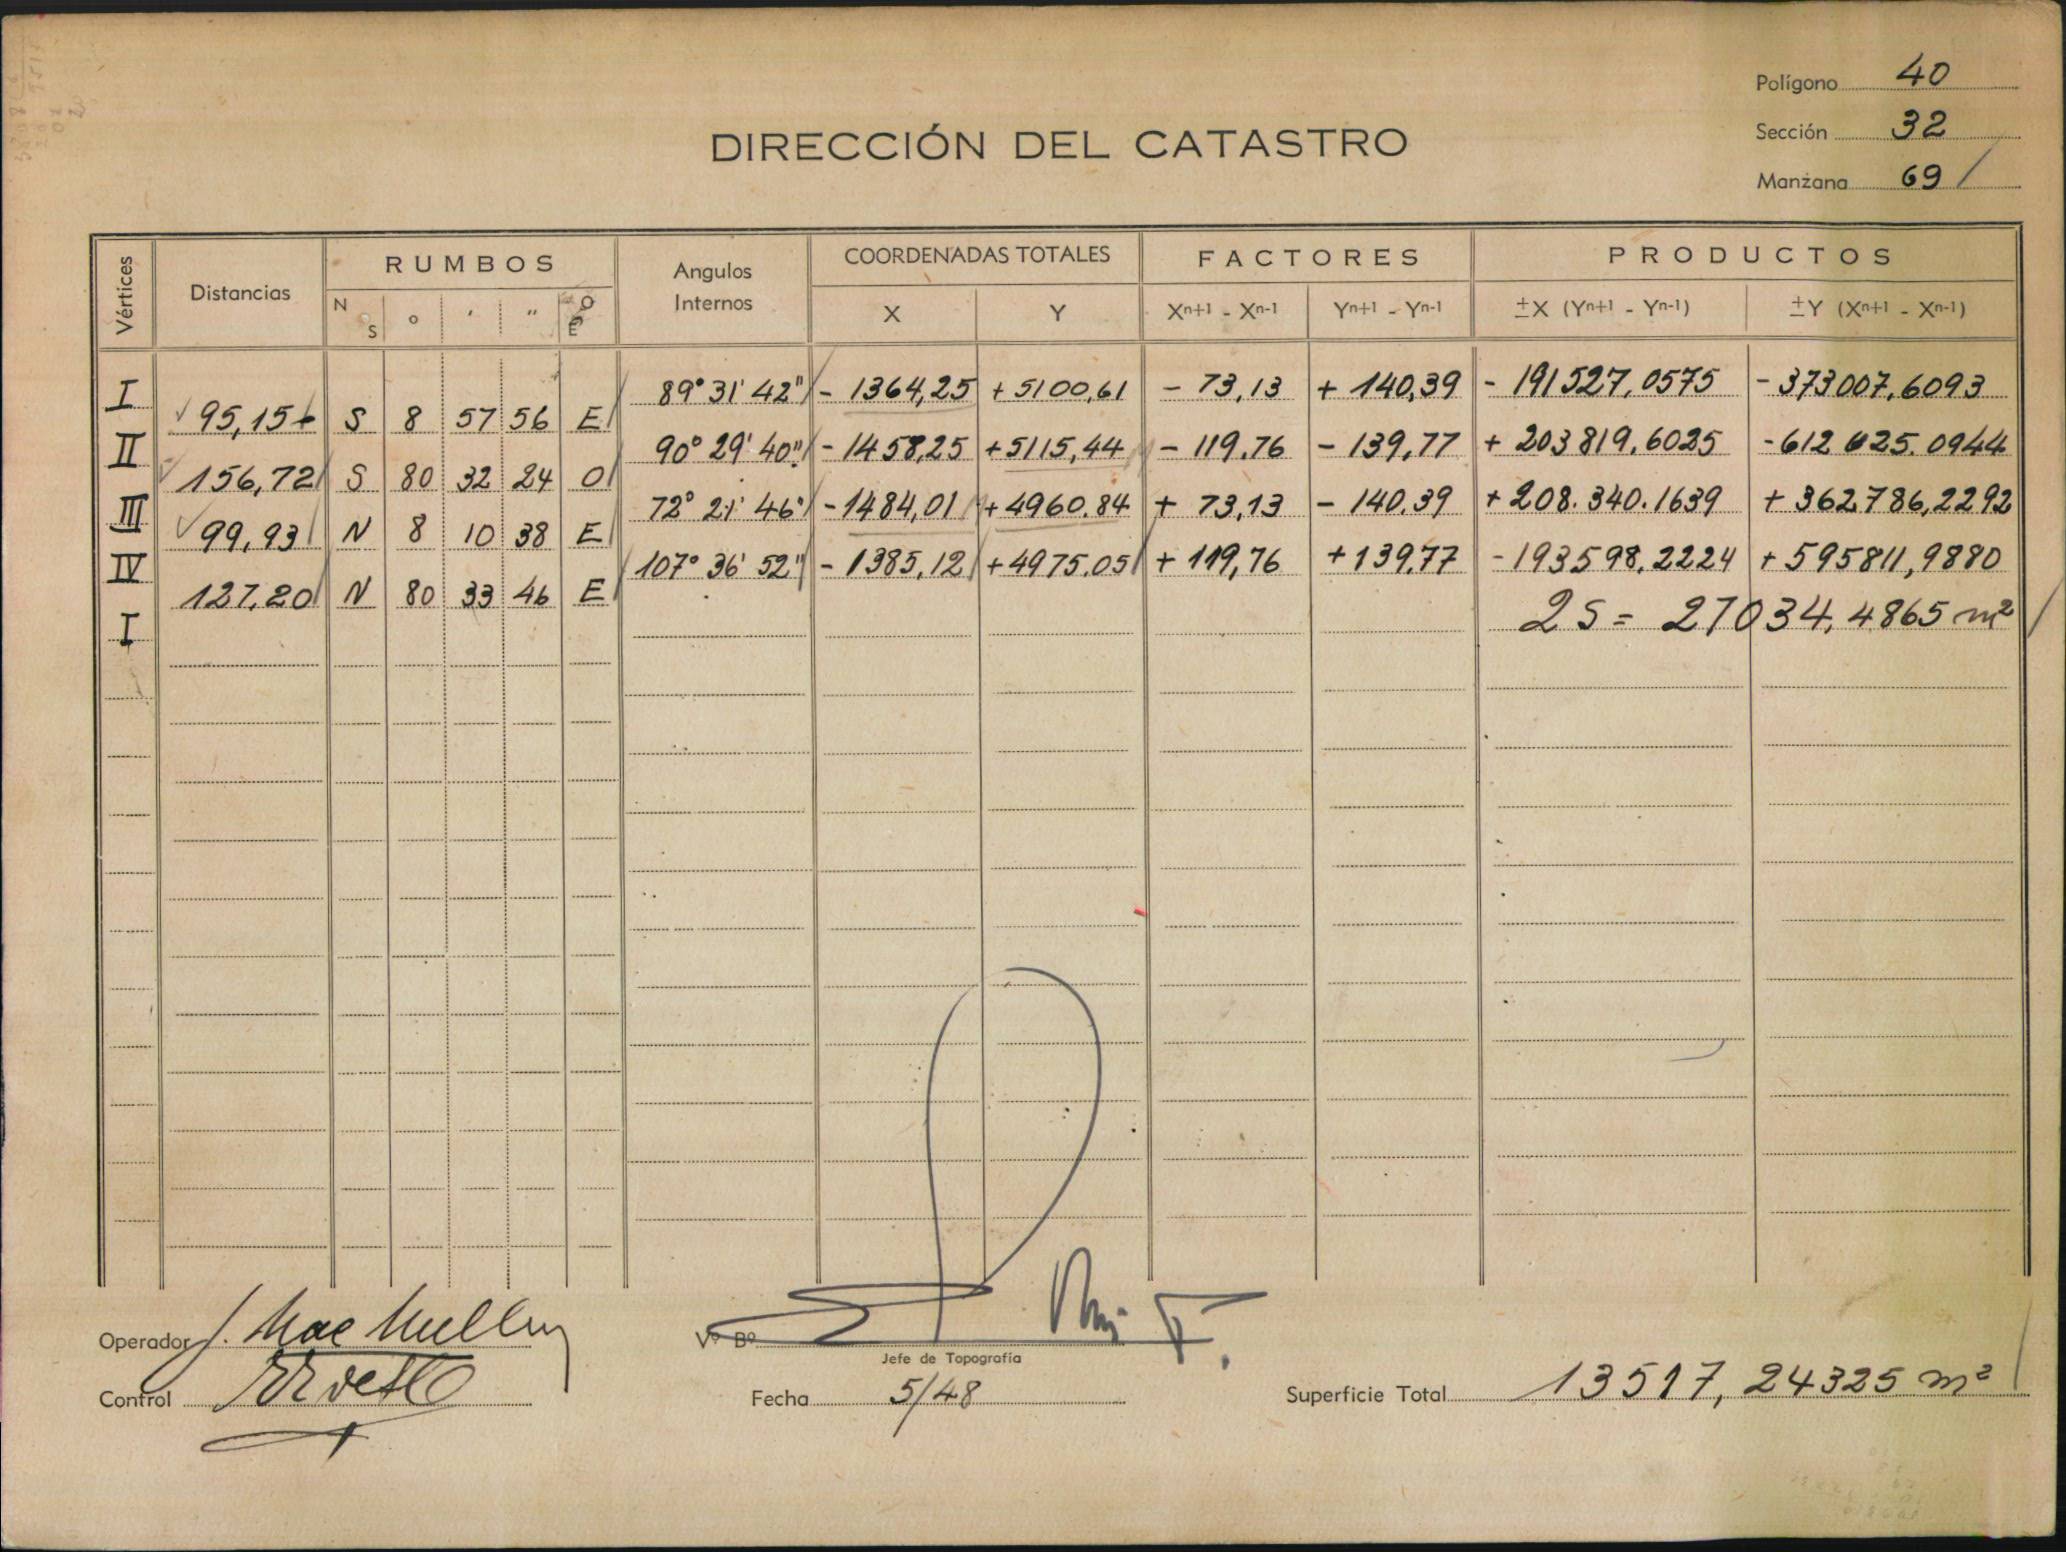 Polígono 40
Sección 32
Manzana 69
DIRECCIÓN DEL CATASTRO
Vértices Distancias RUMBOS Angulos Internos COORDENADAS TOTALES FACTORES PRODUCTOS
N S ° ' " O E X Y Xn+1 - Xn-1 Yn+1 - Yn-1 ±X (Yn+1 - Yn-1) ±Y (Xn+1 - Xn-1)
I 89° 31' 42" - 1364,25 + 5100,61 - 73,13 + 140,39 - 191527,0575 - 373007,6093
95,15 S 8 57 56 E
II 90° 29' 40" - 1458,25 + 5115,44 - 119.76 - 139,77 + 203819,6025 - 612625.0944
156,72 S 80 32 24 O
III 72° 21' 46" - 1484,01 + 4960.84 + 73,13 - 140.39 + 208.340.1639 + 362786,2292
99,93 N 8 10 38 E
IV 107° 36' 52" - 1385,12 + 4975.05 + 119,76 + 139,77 - 193598,2224 + 595811,9880
127,20 N 80 33 46 E
I 2 S = 27034,4865 m²
Operador J. Mac Mullen
Vº Bº
Jefe de Topografía
Control
Fecha 5/48
Superficie Total 13517,24325 m²